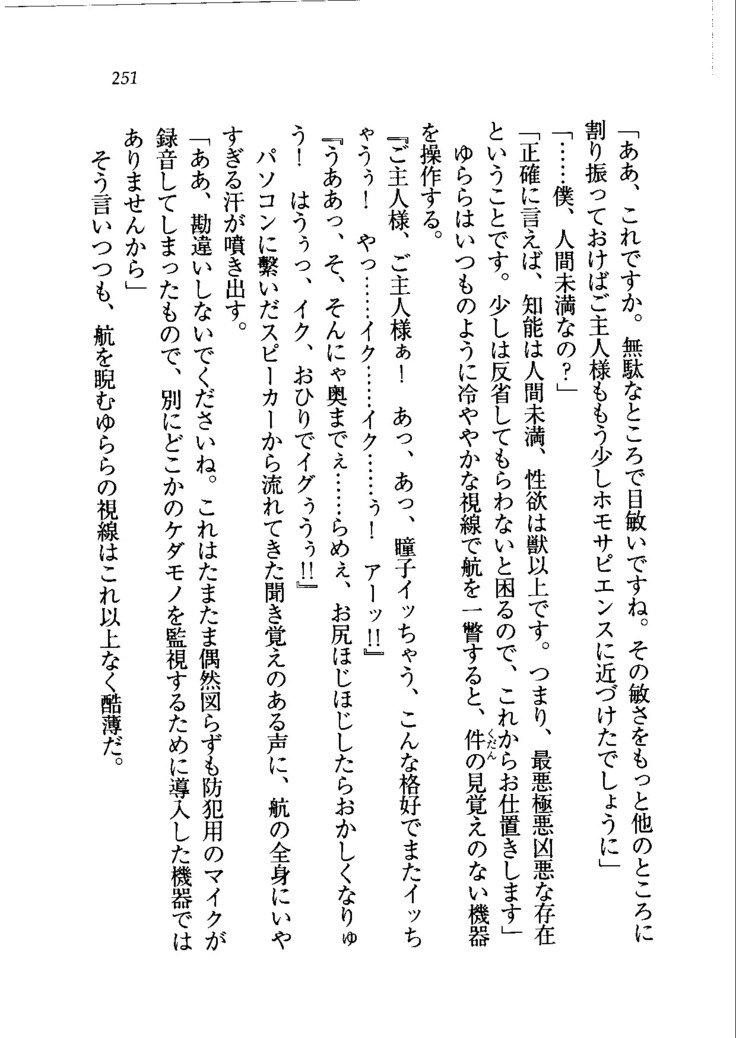 251
「ああ、これですか。無駄なところで目敏いですね。その敏さをもっと他のところに
割り振っておけばご主人様ももう少しホモサピエンスに近づけたでしょうに」
「……僕、人間未満なの？」
「正確に言えば、知能は人間未満、性欲は獣以上です。つまり、最悪極悪凶悪な存在
ということです。少しは反省してもらわないと困るので、これからお仕置きします」
ゆららはいつものように冷ややかな視線で航を一瞥すると、件くだんの見覚えのない機器
を操作する。
『ご主人様、ご主人様ぁ！　あっ、あっ、瞳子イッちゃう、こんな格好でまたイッち
ゃうぅ！　やっ……イク……イク……ぅ！　アーッ!!』
『うああっ、そ、そんにゃ奥までぇ……らめぇ、お尻ほじほじしたらおかしくなりゅ
う！　はうぅっ、イク、おひりでイグぅうぅ!!』
パソコンに繋いだスピーカーから流れてきた聞き覚えのある声に、航の全身にいや
すぎる汗が噴き出す。
「ああ、勘違いしないでくださいね。これはたまたま偶然図らずも防犯用のマイクが
録音してしまったもので、別にどこかのケダモノを監視するために導入した機器では
ありませんから」
そう言いつつも、航を睨むゆららの視線はこれ以上なく酷薄だ。